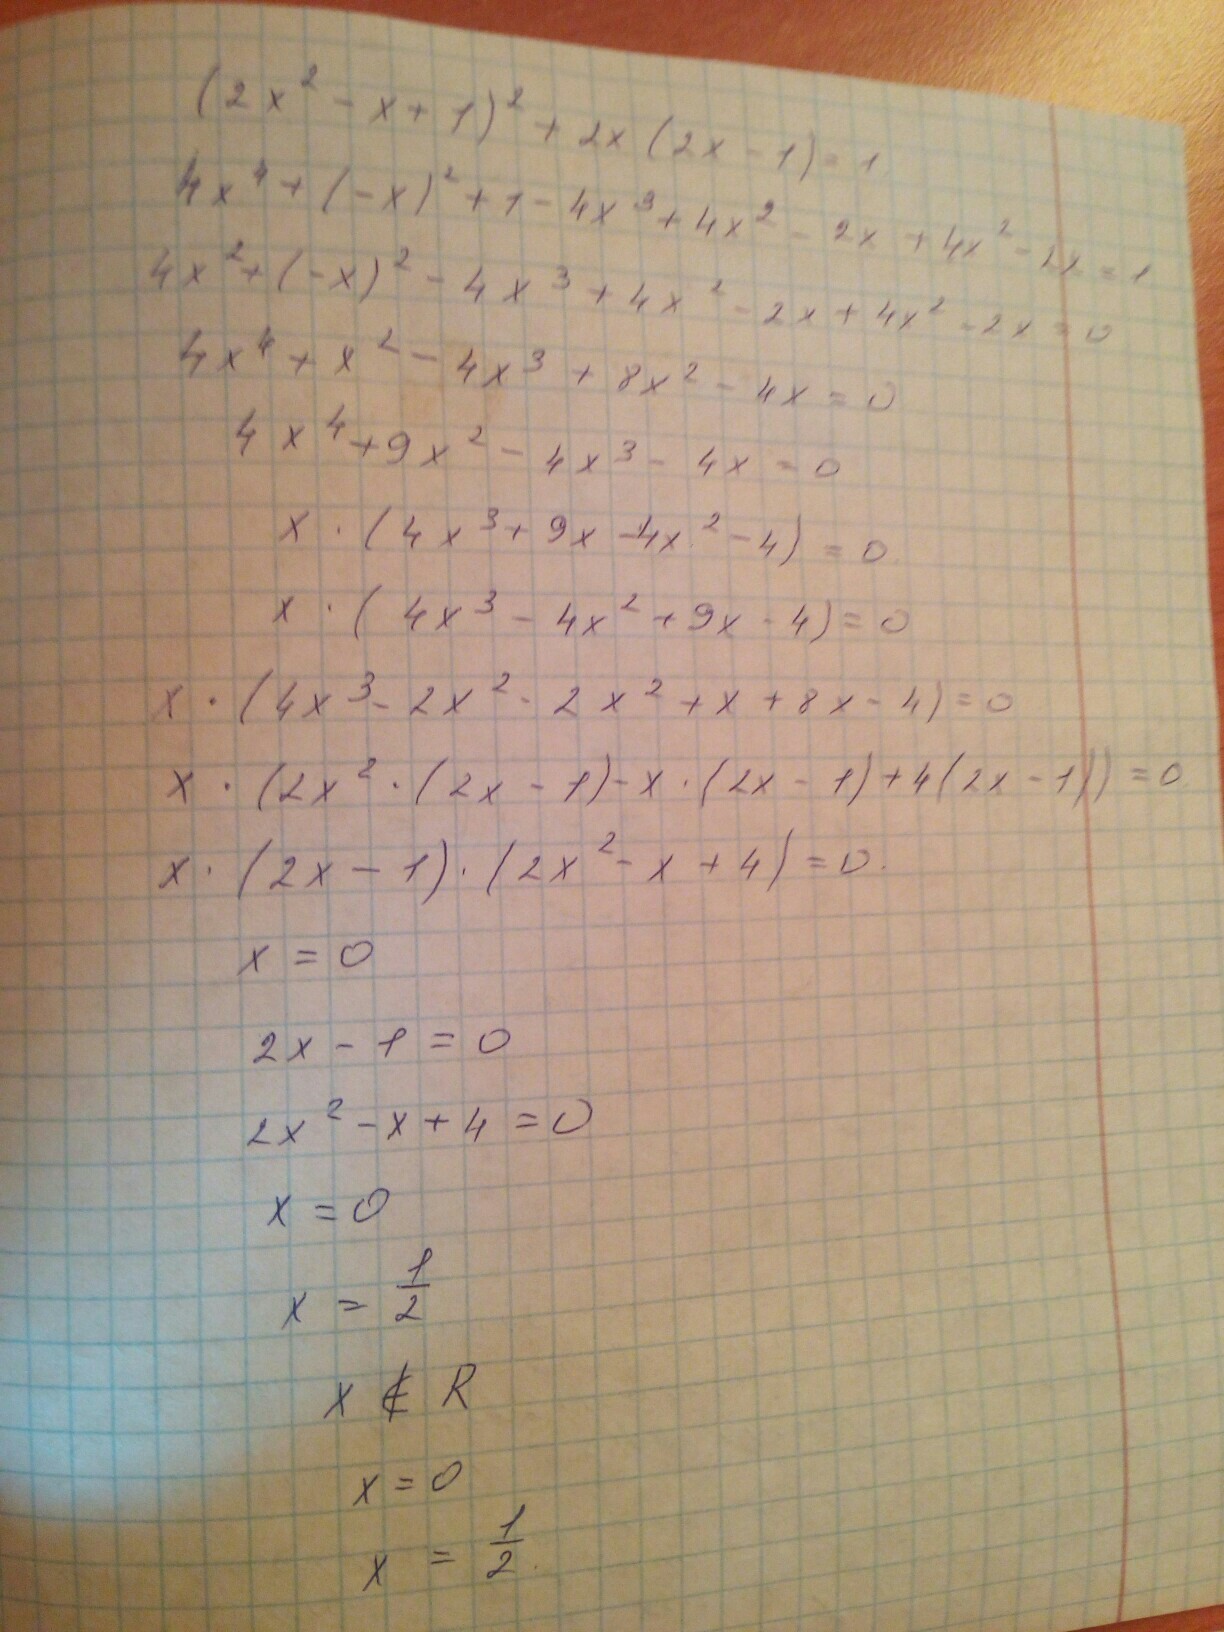 (2x² - x + 1)² + 2x (2x - 1) = 1
4x⁴ + (-x)² + 1 - 4x³ + 4x² - 2x + 4x² - 2x = 1
4x² + (-x)² - 4x³ + 4x² - 2x + 4x² - 2x = 0
4x⁴ + x² - 4x³ + 8x² - 4x = 0
4x⁴ + 9x² - 4x³ - 4x = 0
x · (4x³ + 9x - 4x² - 4) = 0
x · (4x³ - 4x² + 9x - 4) = 0
x · (4x³ - 2x² - 2x² + x + 8x - 4) = 0
x · (2x² · (2x - 1) - x · (2x - 1) + 4(2x - 1)) = 0
x · (2x - 1) · (2x² - x + 4) = 0.
x = 0
2x - 1 = 0
2x² - x + 4 = 0
x = 0
x = 1/2
x ∉ R
x = 0
x = 1/2.